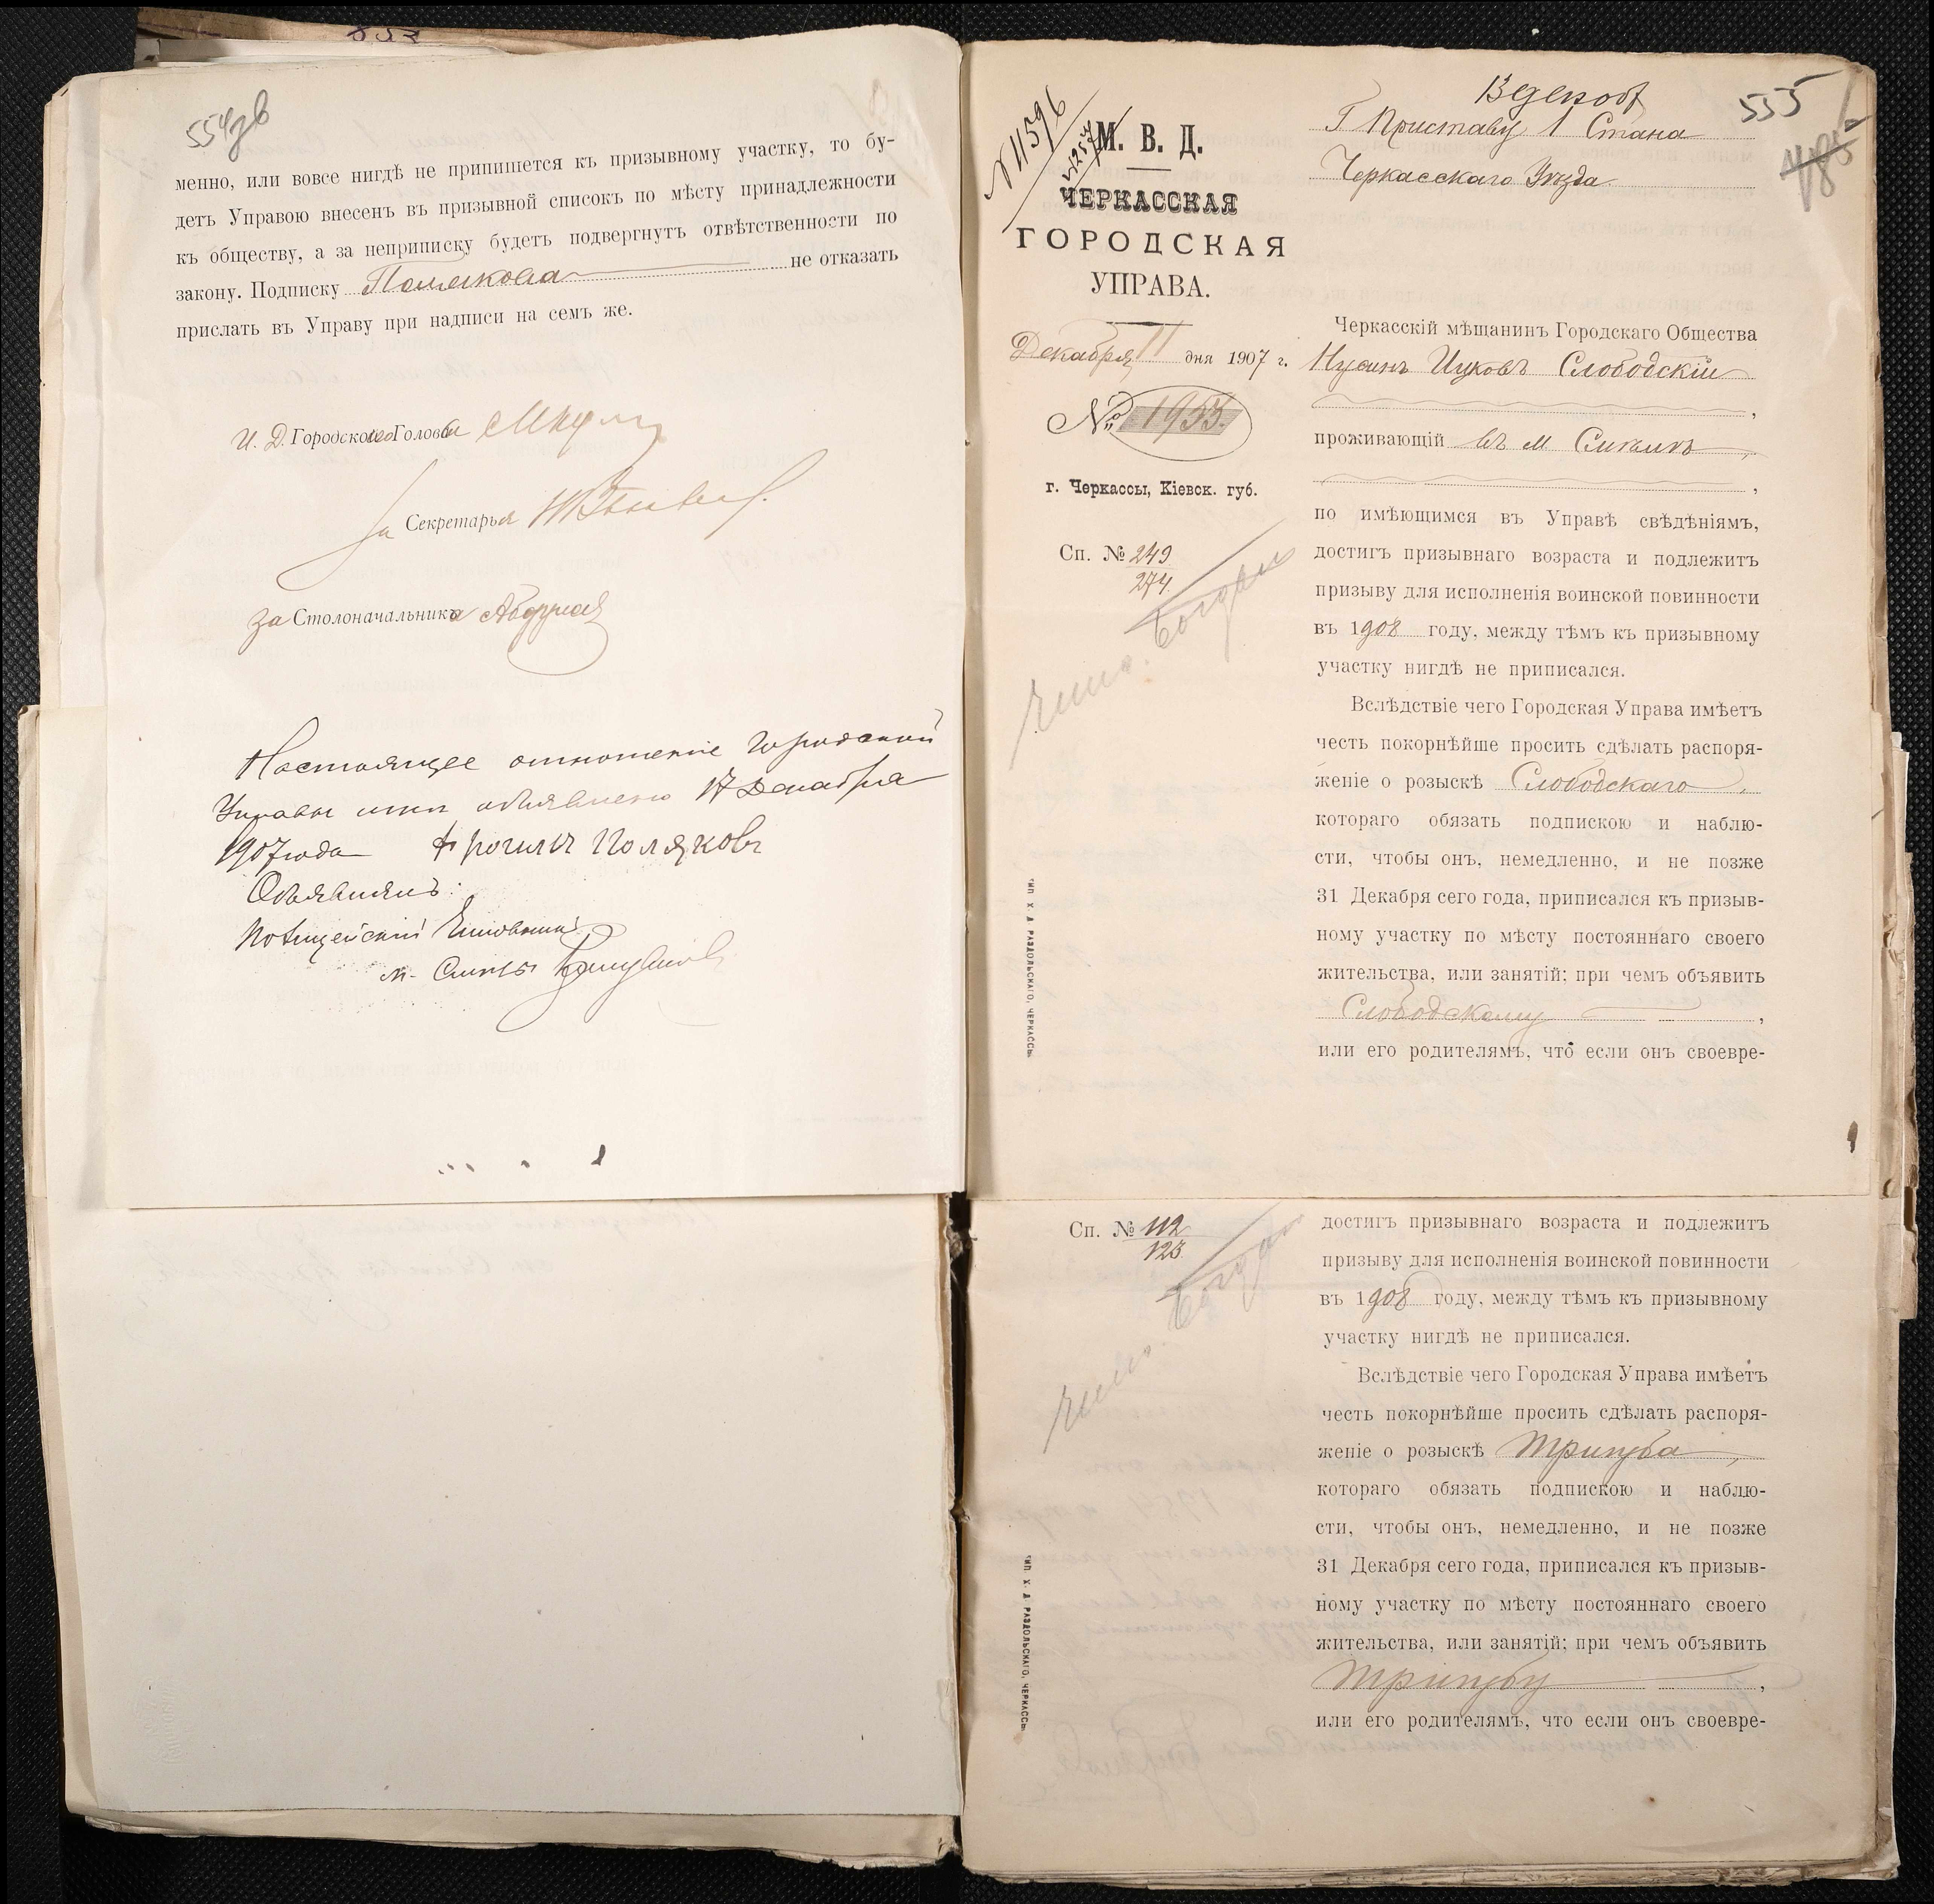 554
менно, или вовсе нигдѣ не припишется къ призывному участку, то бу-
детъ Управою внесенъ въ призывной списокъ по мѣсту принадлежности
къ обществу, а за неприписку будетъ подвергнутъ отвѣтственности по
закону. Подписку Полякова не отказать
прислать въ Управу при надписи на семъ же.
И. Д. Городского Головы
За Секретаря
За Столоначальника
Настоящее отношеніе Городской
Управы мнѣ объявлено 17 Декабря
1907 года Фроимъ Поляковъ
Объявилъ:
Полицейскій
м.
13 декаб
555
№ 11596
М. В. Д.
ЧЕРКАССКАЯ
ГОРОДСКАЯ
УПРАВА.
Декабря 11 дня 1907 г.
№ 1953.
г. Черкассы, Кіевск. губ.
Сп. № 249
274
Г Приставу 1 Стана
Черкасскаго Уѣзда
Черкасскій мѣщанинъ Городскаго Общества
Нусинъ Ицковъ Слободскій
,
проживающій въ м Смѣлѣ,
,
по имѣющимся въ Управѣ свѣдѣніямъ,
достигъ призывнаго возраста и подлежитъ
призыву для исполненія воинской повинности
въ 1908 году, между тѣмъ къ призывному
участку нигдѣ не приписался.
Вслѣдствіе чего Городская Управа имѣетъ
честь покорнѣйше просить сдѣлать распоря-
женіе о розыскѣ Слободскаго,
котораго обязать подпискою и наблю-
сти, чтобы онъ, немедленно, и не позже
31 Декабря сего года, приписался къ призыв-
ному участку по мѣсту постояннаго своего
жительства, или занятій; при чемъ объявить
Слободскому ,
или его родителямъ, что если онъ своевре-
ТИП. Х. Д. РАЗДОЛЬСКАГО, ЧЕРКАССЫ
Сп. № 112
123
достигъ призывнаго возраста и подлежитъ
призыву для исполненія воинской повинности
въ 1908 году, между тѣмъ къ призывному
участку нигдѣ не приписался.
Вслѣдствіе чего Городская Управа имѣетъ
честь покорнѣйше просить сдѣлать распоря-
женіе о розыскѣ Трипуба,
котораго обязать подпискою и наблю-
сти, чтобы онъ, немедленно, и не позже
31 Декабря сего года, приписался къ призыв-
ному участку по мѣсту постояннаго своего
жительства, или занятій; при чемъ объявить
Трипубу ,
или его родителямъ, что если онъ своевре-
ТИП. Х. Д. РАЗДОЛЬСКАГО, ЧЕРКАССЫ